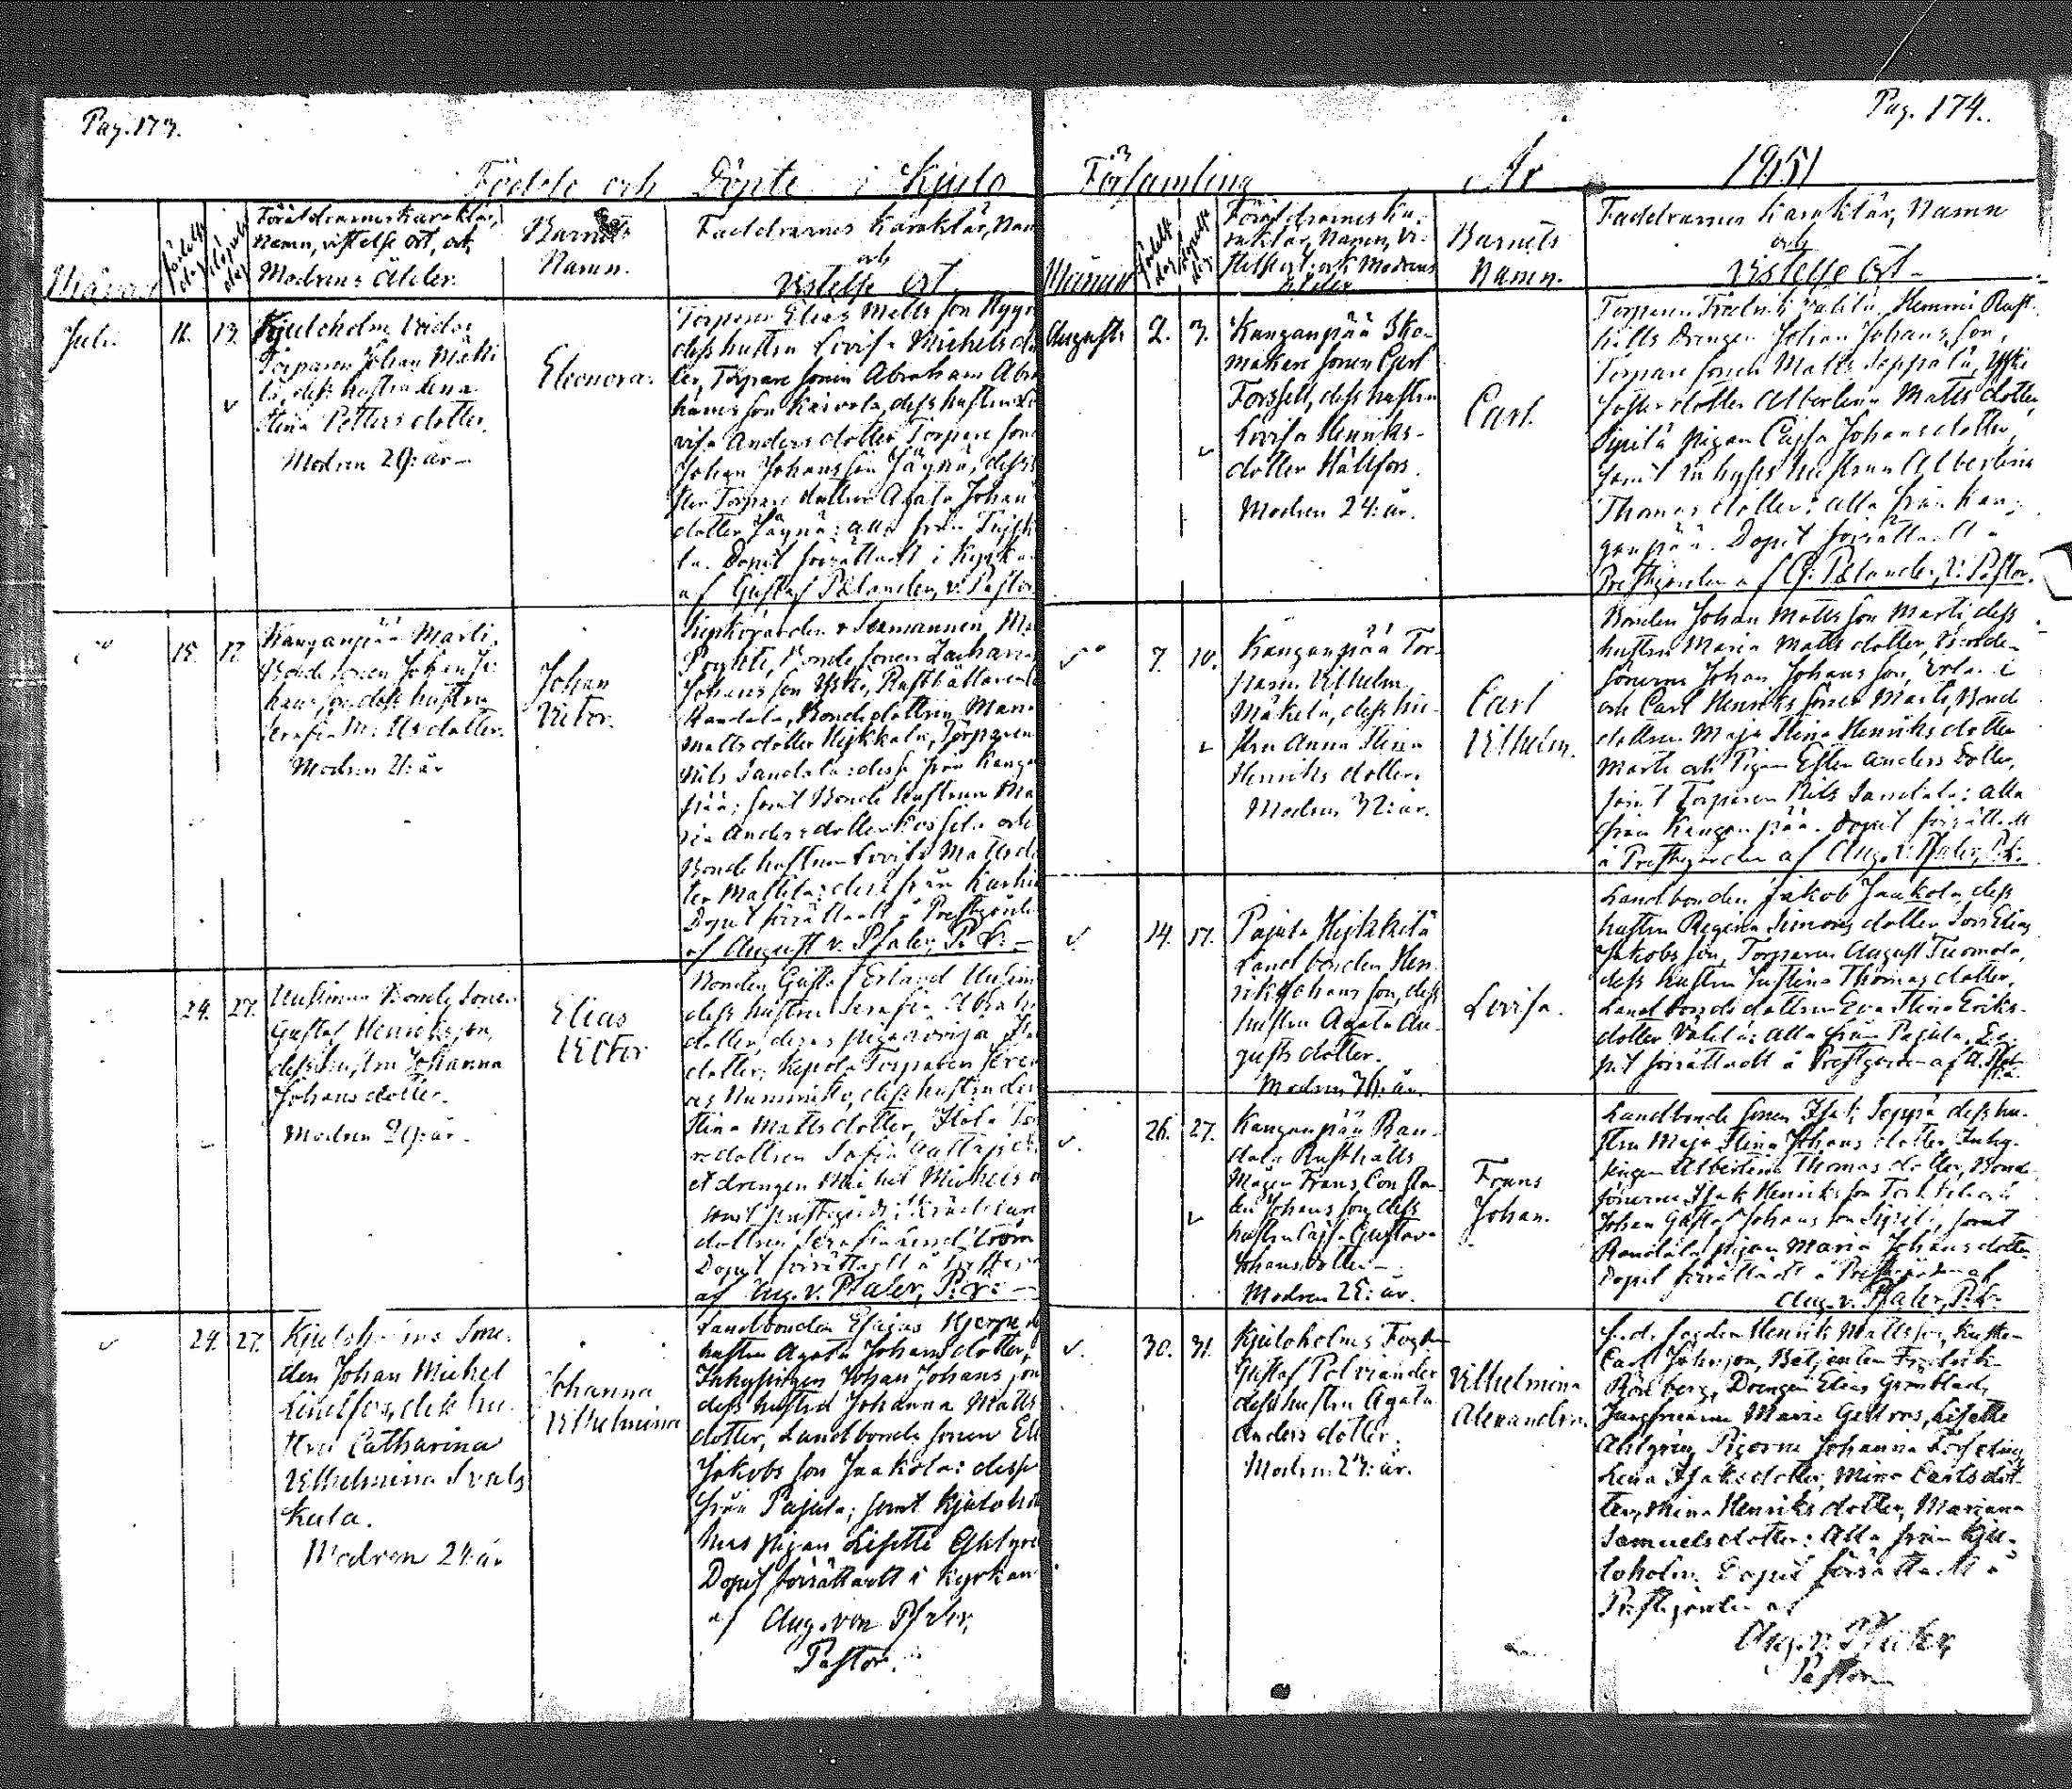 Pag. 173.
Födde och Döpte i Kjulo
Månad
Födelse dag
Döpelse dag
Föräldrarnes karaktär,
Namn, vistelse ort, och
Modrens ålder.
Barnets
Namn.
Faddrarnes karaktär, Nam
och
vistelse ort.
Juli
11. 13.
Kjuloholm
Torparen Johan Matti
la, dess hustru Lena
Stina Petters dotter.
Modren 29: år
Eleonora.
Torparen Elias Matts son
dess hustru Lovisa Michels do
ter, Torpare sonen Abraham Abra
hams son Kaivola, dess hustru Lo
visa Anders dotter, Torpare sone
Johan Johans son Jäynä, dess
Torpare dottren Agata Johan
dotter Jäynä: alla från
la. Dopet förrättadt i Kyrka
af Gustaf Pælander, v. Pastor
15. 17.
Kanganpää Marti
Bonde sonen Johan Jo
hans son, dess hustru
Serafia Matts dotter.
Modren 21: år
Johan
Victor.
Bonde sonen Zachari
Johans son Yski, Rusthållaren
Randala, Bonde dottren Mari
Matts dotter Hejkkala, Torparen
Nils Sandala: desse från Kanga
pää; samt Bonde hustrun Ma
ria Anders dotter Kossila och
Bonde hustrun Lovisa Matts do
ter Mattila: desse från Karhi
Dopet förrättadt å Prestgården
af August v. Pfaler, P. L.
24. 27.
Uusimaa Bonde sonen
Gustaf Henriks son,
dess hustru Johanna
Johans dotter.
Modren 29: år.
Elias
Victor
Bonden Gustaf Erland Uusim
dess hustru Serafia Abra
dotter, deras piga Lovisa
dotter, Kepola Torparen Jere
as Nummisto, dess hustru
Stina Matts dotter,
dottren Sofia
et drengen Michel Michels
samt
dottren Serafia Lindström
Dopet förrättadt å Prestgå
af Aug. v. Pfaler, P. L.
24. 27.
Kjuloholms Sme-
den Johan Michel
Lindfors, dess hu-
stru Catharina
Vilhelmina Svals
kula.
Modren 24: år
Johanna
Vilhelmina
Landbonden Esaias Hjerpe
hustru Agata Johans dotter,
Inhysingen Johan Johans son
dess hustru Johanna Matts
dotter, Landbonde sonen Eli
Jakobs son Jaakola: desse
från Pajula; samt Kjuloho
ms pigan Lisette
Dopet förrättadt i Kyrkan
af Aug. von Pfaler,
Pastor.
Pag. 174.
Församling År 1851
Månad
Födelse dag
Döpelse dag
Föräldrarnes Ka-
raktär, Namn, vi-
stelseort, och Modrens
ålder
Barnets
Namn.
Faddrarnes karaktär, Namn
och
vistelse ort
Augusti
2. 3.
Kanganpää Sko-
makare sonen Carl
Forssell, dess hustru
Lovisa Henriks-
dotter Hällfors.
Modren 24: år.
Carl.
Torparen Fredrik Hemmi Rust-
hålls Drengen Johan Johans son,
Torpare sonen Matts Seppälä, Yski
Syster dotter Albertina Matts dotter,
Sipilä pigan Cajsa Johans dotter,
samt Inhyses hustrun Albertina
Thomas dotter: alla från Kan-
ganpää. Dopet förrättadt å
Prestgården af G. Pælander, v. Pastor.
7. 10.
Kanganpää Tor-
paren Vilhelm
Mäkelä, dess hu-
stru Anna Stina
Henriks dotter.
Modren 32: år.
Carl
Vilhelm.
Bonden Johan Matts son Marti, dess
hustru Maria Matts dotter, Bonde-
sönerne Johan Johans son,
och Carl Henriks son Marti, Bonde
dottren Maja Stina Henriks dotter
Marti och Pigan Ester Anders dotter,
samt Torparen Nils Sandala: alla
från Kanganpää. Dopet förrättadt
å Prestgården af Aug. v. Pfaler, P. L.
14. 17.
Pajula Hejkkilä
Landbonden Hen-
rik Johans son, dess
hustru Agata Au-
gusts dotter.
Modren 36: år.
Lovisa.
Landbonden Jakob Jaakola, dess
hustru Regina Simons dotter, Son Elias
Jakobs son, Torparen August Tuomola,
dess hustru Justina Thomas dotter,
Landbonde dottren Eva Stina Eriks-
dotter: alla från Pajula. Do-
pet förrättadt å Prestgården af
26. 27.
Kanganpää Ran-
dala Rusthålls
Mågen Frans Constan-
tin Johans son, dess
hustru Cajsa Gustava
Johans dotter
Modren 25: år.
Frans
Johan.
Landbonde sonen Isak Seppä, dess hu-
stru Maja Stina Johans dotter, Inhy-
singen Albertina Thomas dotter, Bonde
sönerne Isak Henriks son
Johan Gustaf Johans son Sipilä, samt
Randala pigan Maria Johans dotter.
Dopet förrättadt å Prestgården af
Aug. v. Pfaler, P. L.
30. 31.
Kjuloholms Fogden
Gustaf Polviander
dess hustru Agata
Anders dotter.
Modren 27: år.
Vilhelmina
Alexandra.
f. d. fogden Henrik Matts son, Kusken
Carl Johnson, Betjenten Fredrik
Rönberg, Drengen Elias Grönblad,
Jungfruerna Maria Gestrins, Lisette
Ahlgren, Pigorne Johanna
Lena Isaks dotter, Mina Carls dot-
ter, Mina Henriks dotter, Mariana
Samuels dotter: alla från Kju-
loholm. Dopet förrättadt å
Prestgården af
Aug. v. Pfaler,
Pastor